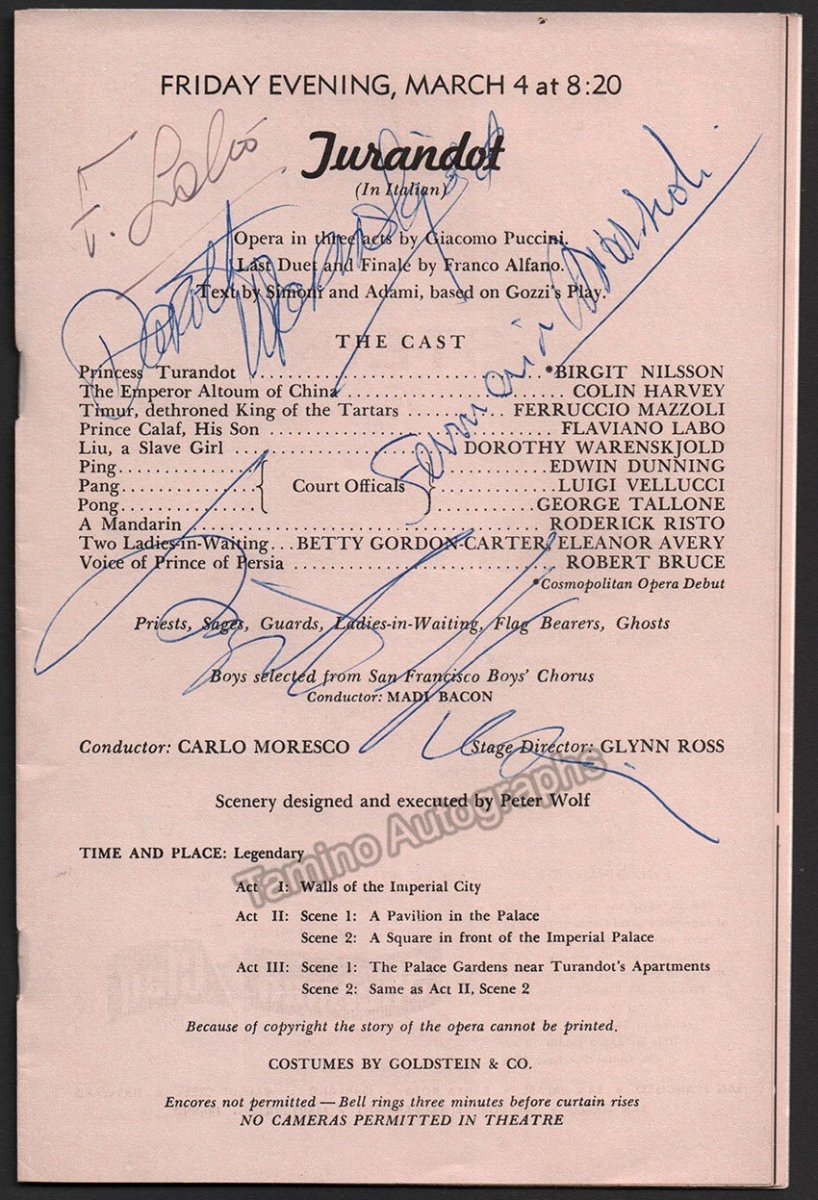 FRIDAY EVENING, MARCH 4 at 8:20
F. Labó
Turandot
(In Italian)
Dorothy Warenskjold
Opera in three acts by Giacomo Puccini.
Last Duet and Finale by Franco Alfano.
Text by Simoni and Adami, based on Gozzi's Play.
THE CAST
Princess Turandot ........ *BIRGIT NILSSON
The Emperor Altoum of China ........ COLIN HARVEY
Timur, dethroned King of the Tartars ........ FERRUCCIO MAZZOLI
Prince Calaf, His Son ........ FLAVIANO LABO
Liu, a Slave Girl ........ DOROTHY WARENSKJOLD
Ping ........ EDWIN DUNNING
Pang ........ { Court Officals } ........ LUIGI VELLUCCI
Pong ........ GEORGE TALLONE
A Mandarin ........ RODERICK RISTO
Two Ladies-in-Waiting ... BETTY GORDON-CARTER, ELEANOR AVERY
Voice of Prince of Persia ........ ROBERT BRUCE
*Cosmopolitan Opera Debut
Priests, Sages, Guards, Ladies-in-Waiting, Flag Bearers, Ghosts
Boys selected from San Francisco Boys' Chorus
Conductor: MADI BACON
Conductor: CARLO MORESCO Stage Director: GLYNN ROSS
Scenery designed and executed by Peter Wolf
Tamino Autographs
TIME AND PLACE: Legendary
Act I: Walls of the Imperial City
Act II: Scene 1: A Pavilion in the Palace
Scene 2: A Square in front of the Imperial Palace
Act III: Scene 1: The Palace Gardens near Turandot's Apartments
Scene 2: Same as Act II, Scene 2
Because of copyright the story of the opera cannot be printed.
COSTUMES BY GOLDSTEIN & CO.
Encores not permitted — Bell rings three minutes before curtain rises
NO CAMERAS PERMITTED IN THEATRE